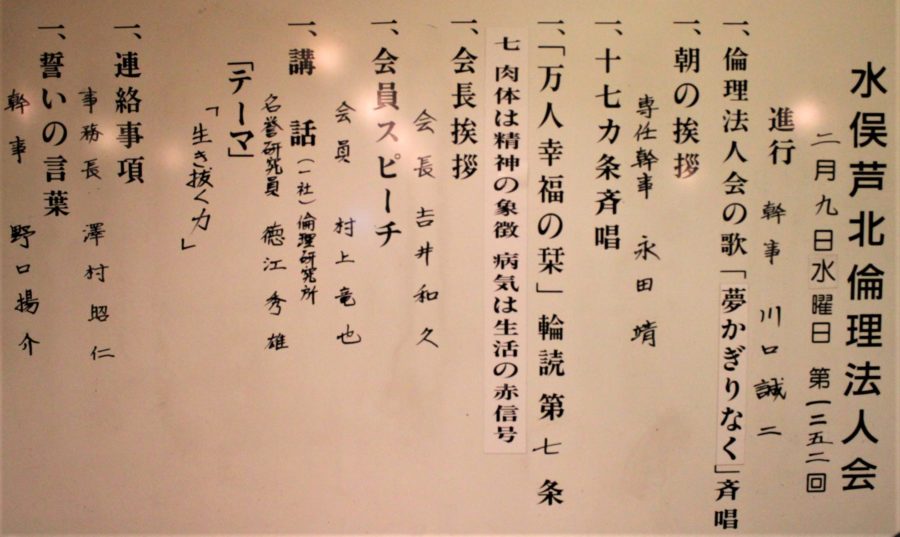 水俣芦北倫理法人会
二月九日水曜日 第一二五二回
進行 幹事 川口誠二
一、倫理法人会の歌「夢かぎりなく」斉唱
一、朝の挨拶
専任幹事 永田靖
一、十七カ条斉唱
一、「万人幸福の栞」輪読 第七条
七 肉体は精神の象徴 病気は生活の赤信号
一、会長挨拶
会長 吉井和久
一、会員スピーチ
会員 村上竜也
一、講話 (一社)倫理研究所
名誉研究員 徳江秀雄
「テーマ」
「生き抜く力」
一、連絡事項
事務長 澤村昭仁
一、誓いの言葉
幹事 野口揚介